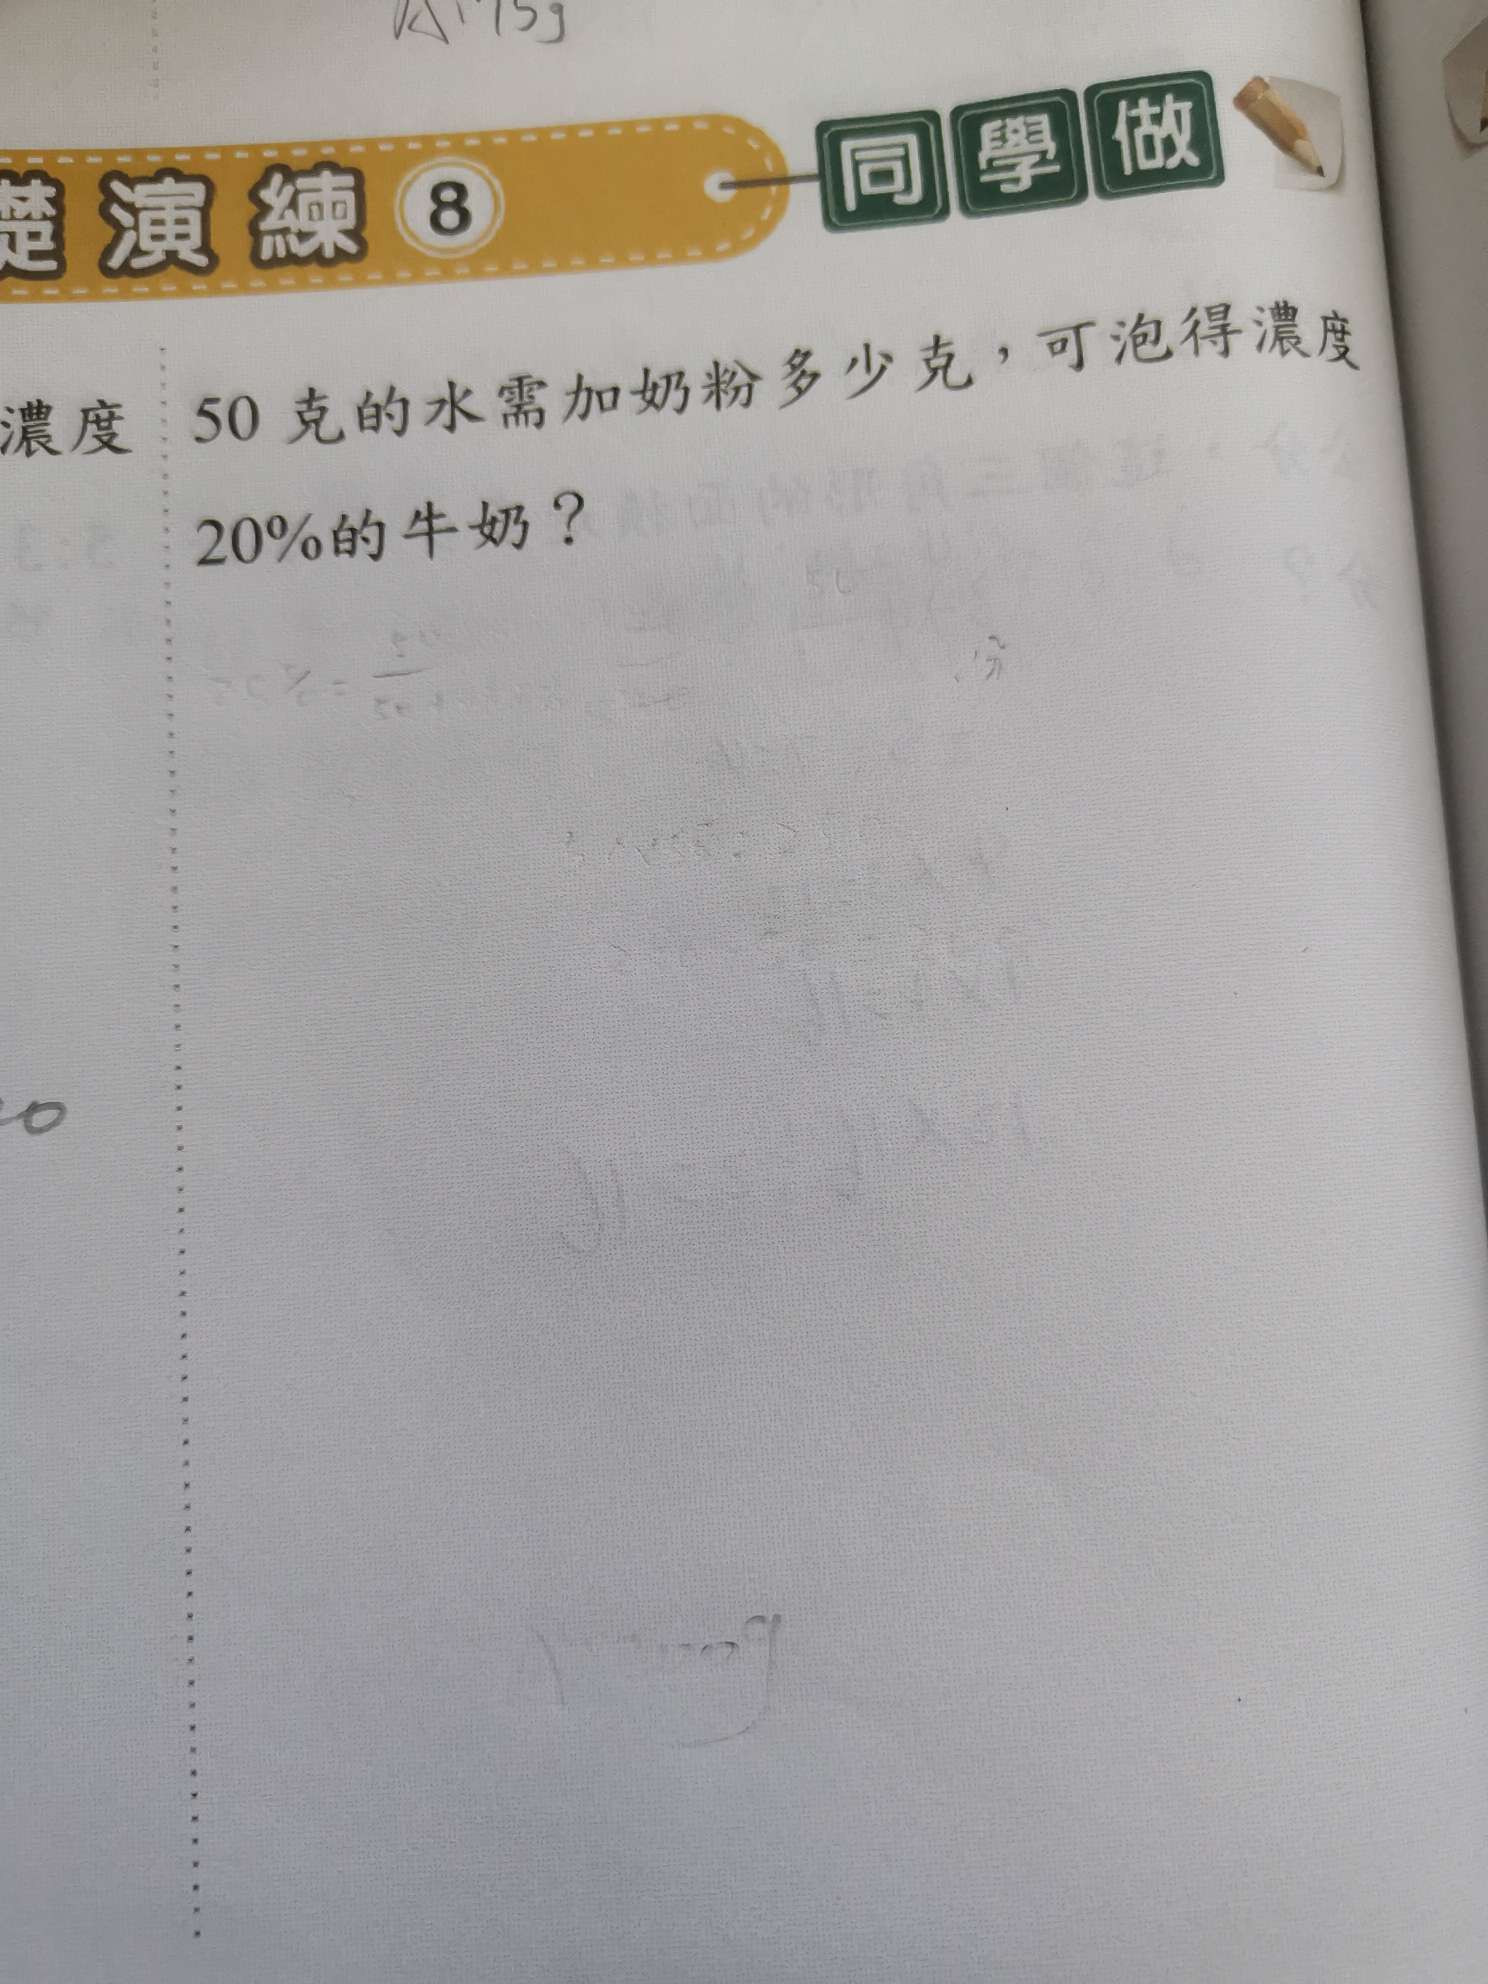 75g
礎演練 8 同學做
濃度
50 克的水需加奶粉多少克，可泡得濃度
20%的牛奶？